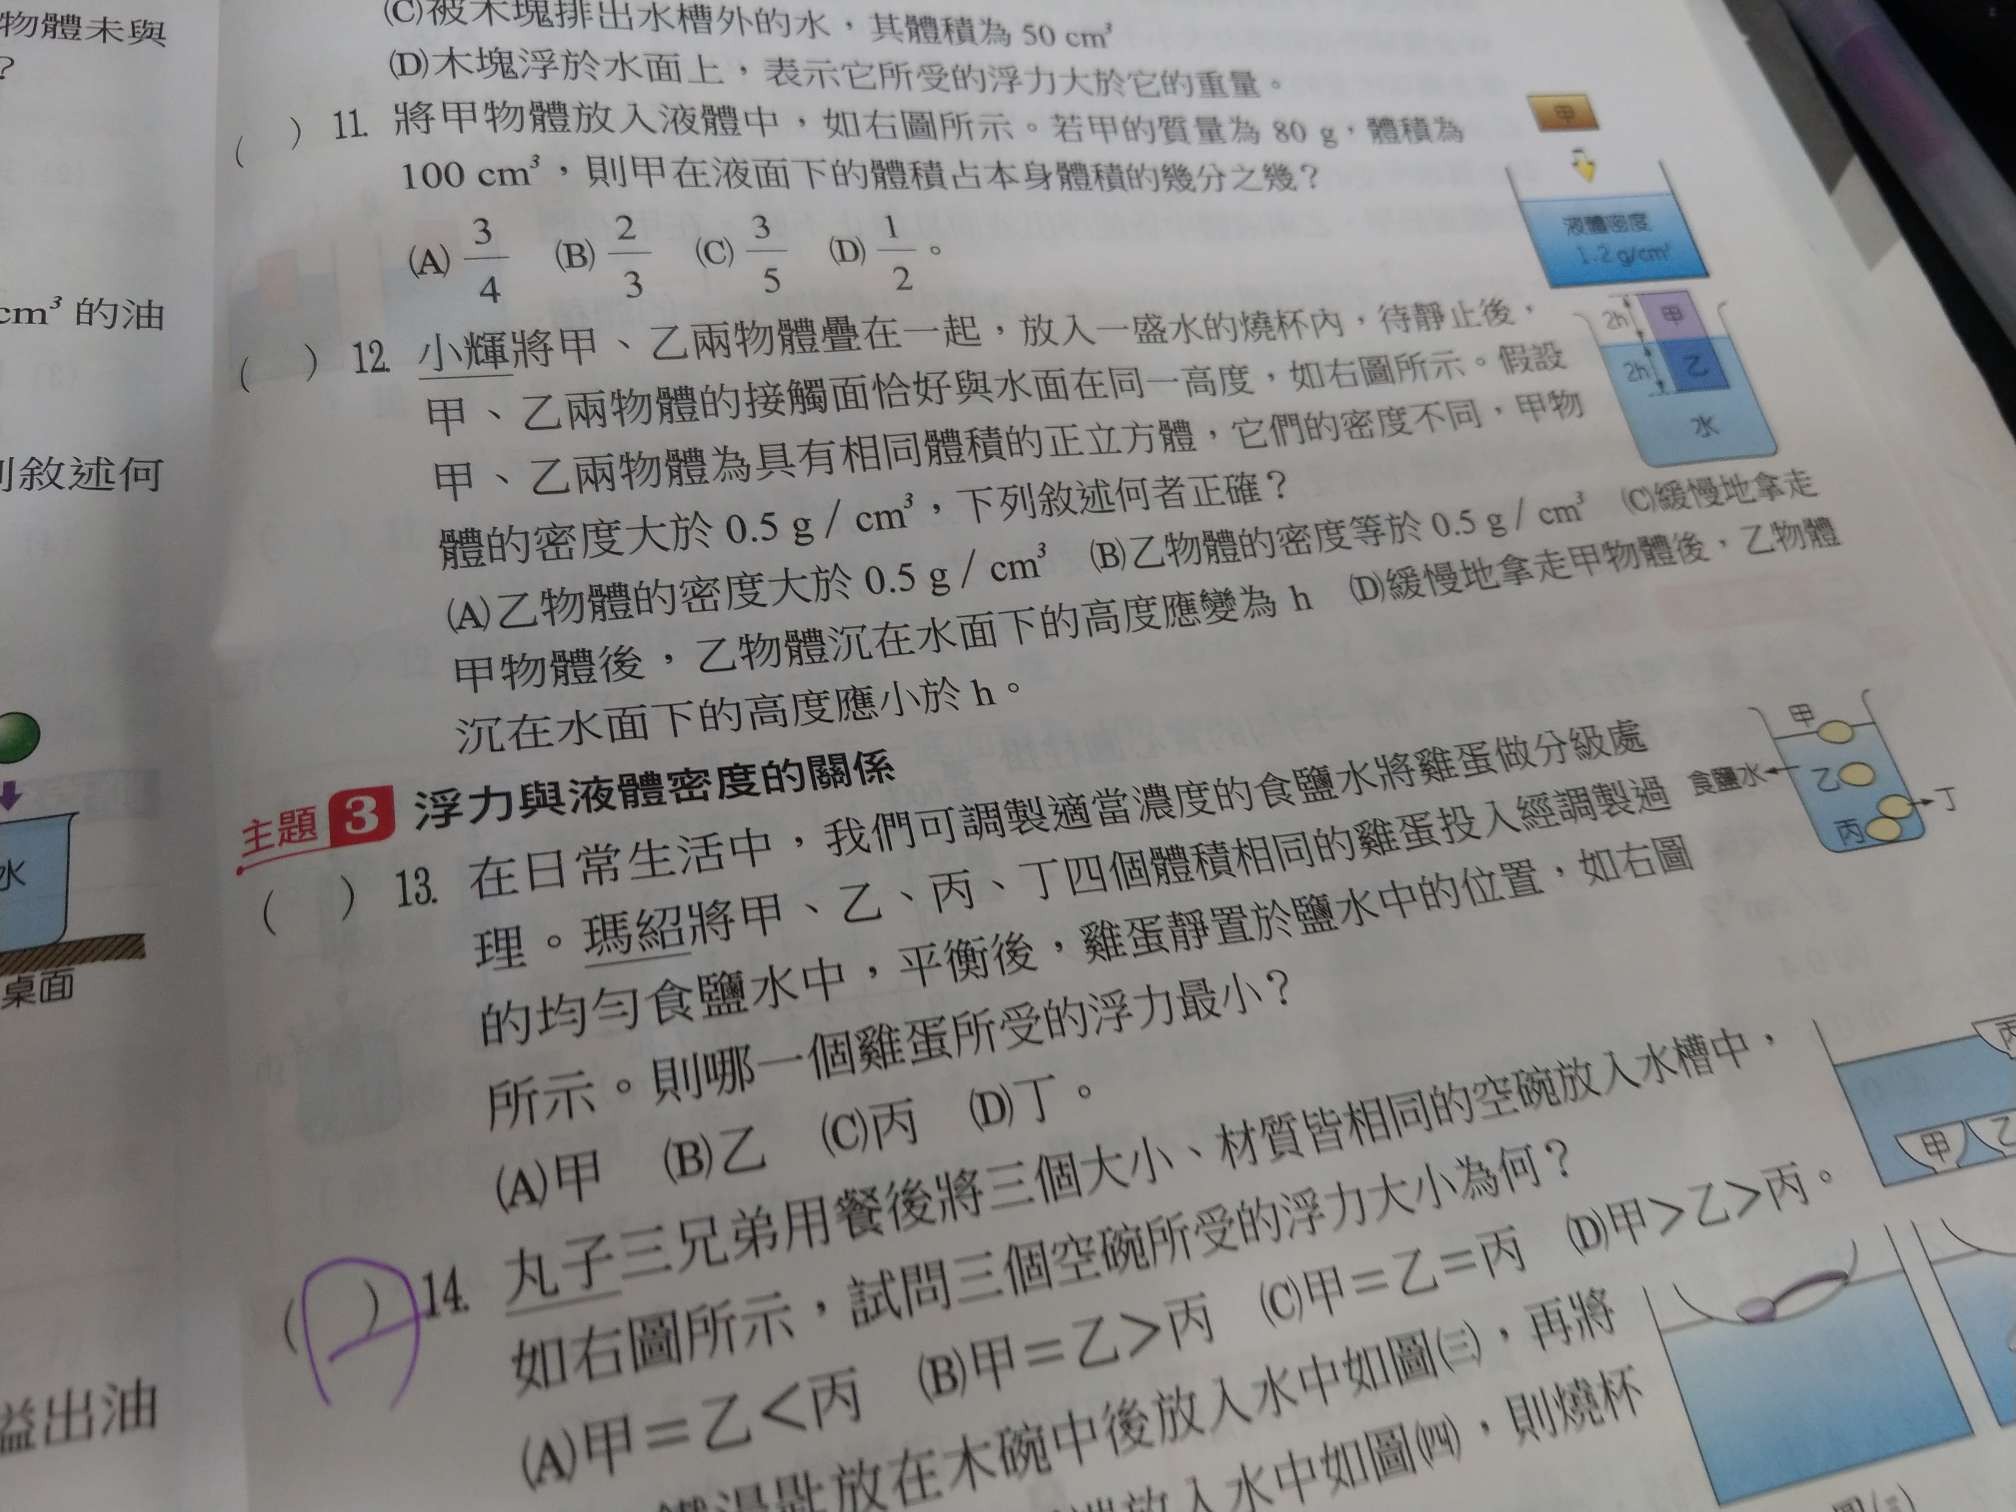 物體未與
?
cm³ 的油
列敘述何
水
桌面
溢出油
(C)被木塊排出水槽外的水，其體積為 50 cm³
(D)木塊浮於水面上，表示它所受的浮力大於它的重量。
( ) 11. 將甲物體放入液體中，如右圖所示。若甲的質量為 80 g，體積為
100 cm³，則甲在液面下的體積占本身體積的幾分之幾？
(A) 3/4 (B) 2/3 (C) 3/5 (D) 1/2 。
甲
液體密度
1.2 g/cm³
( ) 12. 小輝將甲、乙兩物體疊在一起，放入一盛水的燒杯內，待靜止後，
甲、乙兩物體的接觸面恰好與水面在同一高度，如右圖所示。假設
甲、乙兩物體為具有相同體積的正立方體，它們的密度不同，甲物
體的密度大於 0.5 g／cm³，下列敘述何者正確？
(A)乙物體的密度大於 0.5 g／cm³ (B)乙物體的密度等於 0.5 g／cm³ (C)緩慢地拿走
甲物體後，乙物體沉在水面下的高度應變為 h (D)緩慢地拿走甲物體後，乙物體
沉在水面下的高度應小於 h。
2h 甲
2h 乙
水
主題 3 浮力與液體密度的關係
( ) 13. 在日常生活中，我們可調製適當濃度的食鹽水將雞蛋做分級處
理。瑪紹將甲、乙、丙、丁四個體積相同的雞蛋投入經調製過
的均勻食鹽水中，平衡後，雞蛋靜置於鹽水中的位置，如右圖
所示。則哪一個雞蛋所受的浮力最小？
(A)甲 (B)乙 (C)丙 (D)丁。
甲
食鹽水 乙
丁
丙
(A) 14. 丸子三兄弟用餐後將三個大小、材質皆相同的空碗放入水槽中，
如右圖所示，試問三個空碗所受的浮力大小為何？
(A)甲＝乙＜丙 (B)甲＝乙＞丙 (C)甲＝乙＝丙 (D)甲＞乙＞丙。
丙
甲 乙
放在木碗中後放入水中如圖(三)，再將
放入水中如圖(四)，則燒杯